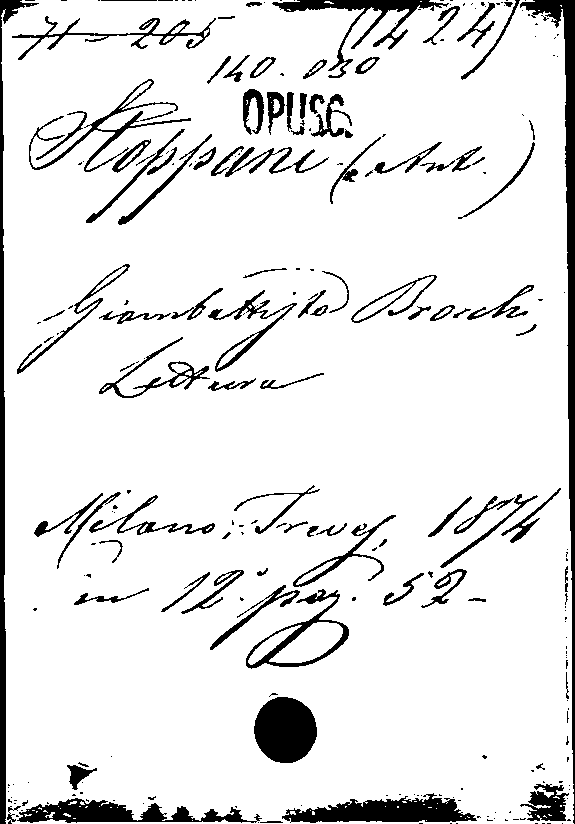 71 - 205 (1424)
140.030
OPUSC.
Stoppani (Ant.)
Giambattista Brocchi,
Lettura
Milano, Treves, 1874
in 12.° pag. 52-